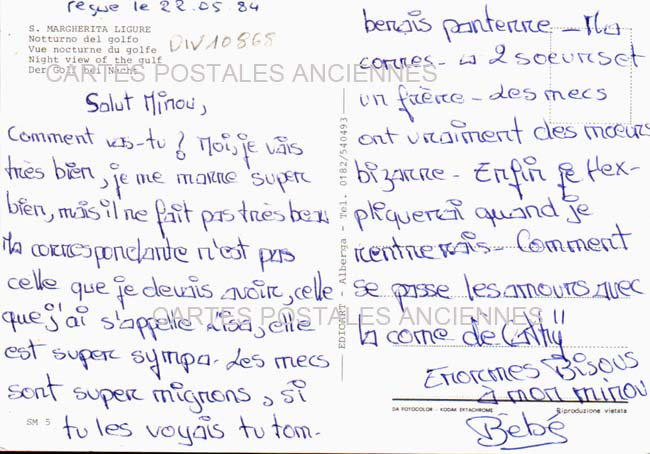 reçue le 22.05.84
S. MARGHERITA LIGURE
Notturno del golfo
Vue nocturne du golfe
Night view of the gulf
Der Golf bei Nacht
DIV10868
CARTES POSTALES ANCIENNES
Salut Minou,
Comment vas-tu ? Moi, je vais
très bien, je me marre super
bien, mais il ne fait pas très beau
Ma correspondante n'est pas
celle que je devais avoir, celle
que j'ai s'appelle Lisa, elle
est super sympa. Les mecs
sont super mignons, si
tu les voyais tu tom-
SM 5
EDICART - Albenga - Tel. 0182/540493
berais panterre - Ma
corres - a 2 soeurs et
un frère - Les mecs
ont vraiment des moeurs
bizarre - Enfin je t'ex-
pliquerai quand je
rentrerais - Comment
se passe les amours avec
CARTES POSTALES ANCIENNES
la corne de Cathy"
Enormes Bisous
à mon minou
DA FOTOCOLOR - KODAK EKTACHROME
Riproduzione vietata
Bébé